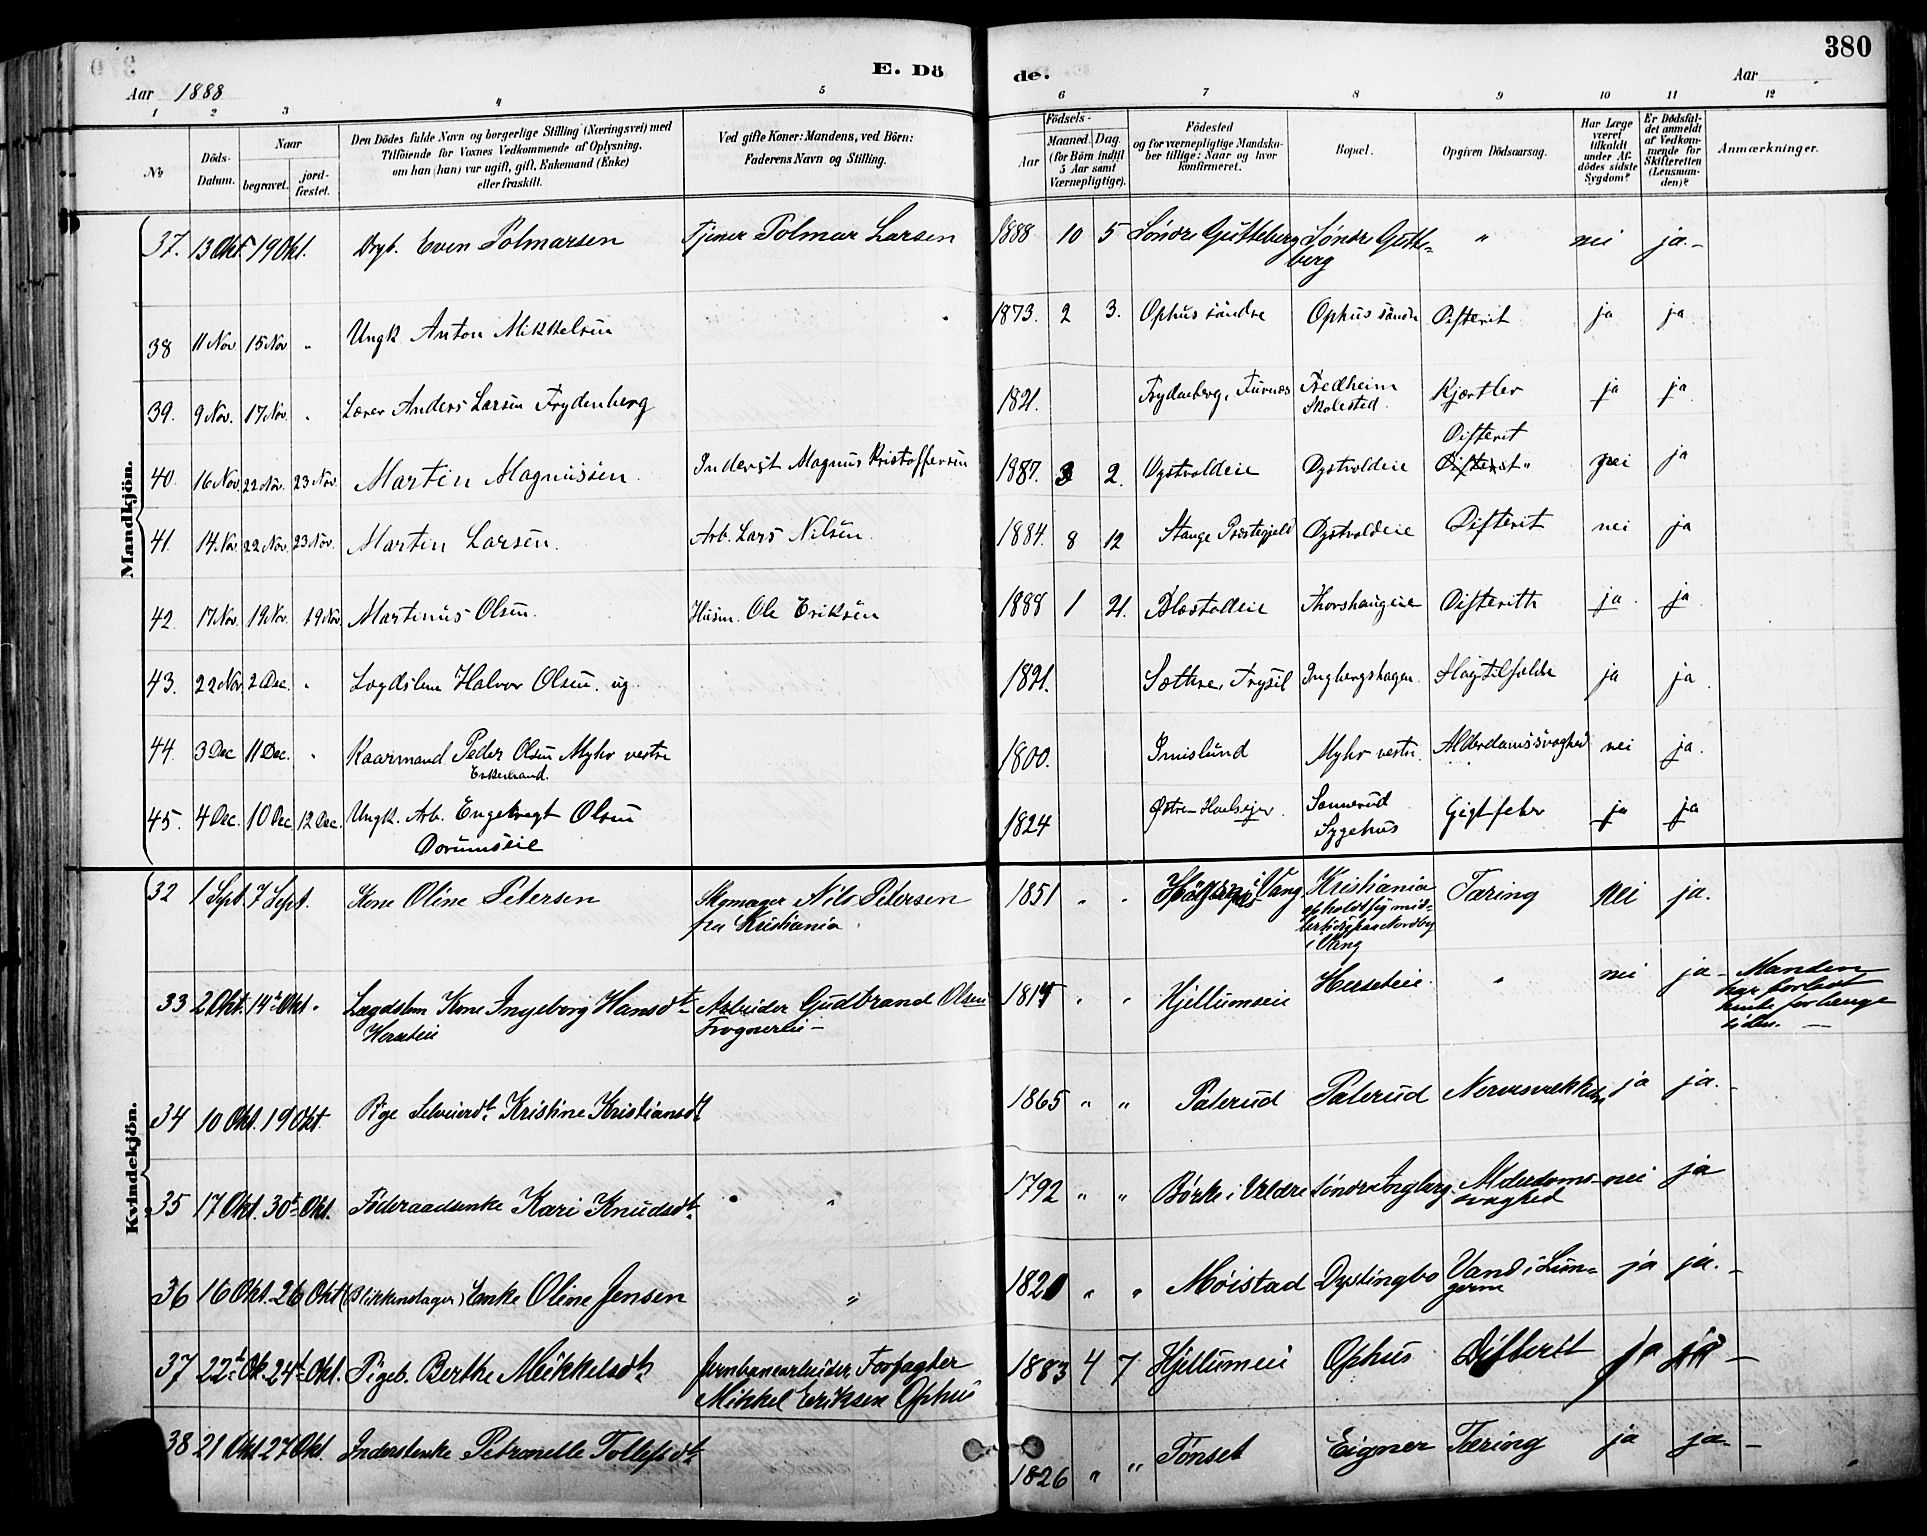 380
E. Dö
de.
Aar 1888
Aar
1 2 3 4 5 6 7 8 9 10 11 12
No
Döds-
Datum.
Naar
begravet.
jord-
fæstet.
Den Dödes fulde Navn og borgerlige Stilling (Næringsvei) med
Tilföiende for Voxnes Vedkommende af Oplysning,
om han (hun) var ugift, gift, Enkemand (Enke)
eller fraskilt.
Ved gifte Koner: Mandens, ved Börn:
Faderens Navn og Stilling.
Födsels-
Aar
Maaned. Dag.
(for Börn indtil
5 Aar samt
Værnepligtige).
Födested
og for værnepligtige Mandska-
ber tillige: Naar og hvor
konfirmeret.
Bopæl.
Opgiven Dödsaarsag.
Har Læge
været
tilkaldt
under Af-
dödes sidste
Sygdom?
Er Dödsfal-
det anmeldt
af Vedkom-
mende for
Skifteretten
(Lensman-
den)?
Anmærkninger.
Mandkjön.
37. 13 Okt. 19 Okt. Drgb. Even Polmarsen Tjener Polmar Larsen 1888 10 5 Söndre Gutteberg Söndre Gutte-
berg " nei ja.-
38 11 Nov. 15 Nov " Ungk. Anton Mikkelsen 1873. 2 3. Ophus söndre Ophus söndre Difterit ja ja
39. 9 Nov. 17 Nov. " Lærer Anders Larsen Frydenberg 1821. Frydenberg, Furnæs Fredheim
Skolested. Kjertler ja ja
40. 16 Nov 22 Nov. 23 Nov. Martin Magnussen. Inderst Magnus Kristoffersen 1887. 3 2. Dystvoldeie Dystvoldeie Difterit
nei ja
41. 14. Nov 22 Nov. 23 Nov. Martin Larsen. Arb. Lars Nilsen. 1884. 8 12 Stange Præstegjeld Dystvoldeie Difterit nei ja
42. 17 Nov. 19 Nov. 19 Nov. Martinus Olsen. Husm. Ole Eriksen 1888 1 21. Blæstadeie Thorshaugeie Difterith ja. ja.
43. 22 Nov. 2 Dec. " Lægdslem Halvor Olsen. ug. 1821. Sæthre, Trysil Ingbergshagen. Slagtilfælde ja ja.
44. 3 Dec 11 Dec. " Kaarmand Peder Olsen Myhr vestre
Enkemand. 1800. Imislund Myhr vestre. Alderdomssvaghed nei ja.
45. 4 Dec. 10 Dec. 12 Dec. Ungk. Arb. Engebregt Olsen
Dorumseie 1824 Østre Sannerud
Sygehus Gigtfeber ja ja
Kvindekjön.
32 1 Sept. 7 Sept. Kone Oline Petersen Skomager Nils Petersen
fra Kristiania. 1851 " " i Vang Kristiania
opholdt sig mid-
lertidig paa Nordberg
i Vang Tæring nei ja.
33 2 Okt. 14de Okt. " Lægdslem Kone Ingeborg Hansdtr.
Arbeider Gudbrand Olsen
Frognereie- 1814 " " Hjellumseie " nei ja- Manden
har forladt
hende forlænge
siden. -
34 10 Okt. 19 Okt. Pige Kristine Kristiansdtr 1865 " " Palerud Palerud ja ja.-
35 17 Okt. 30te Okt. Föderaadsenke Kari Knudsdtr. " 1792 " " Börke i Veldre Söndre Ingberg Alderdoms-
svaghed nei ja
36 16 Okt. 26 Okt. Enke Oline Jensen " 1820 " " Möistad Dystingbo Vand i Lun-
gerne ja ja.-
37 22de Ok. 24de Okt. Pigeb. Berthe Mikkelsdtr. Jernbanearbeider, Forpagter
Mikkel Eriksen Ophus 1883 4 7 Hjellumeie Ophus Difterit ja ja -
38 21 Okt. 27 Okt. Inderstenke Petronelle Tollefsdtr. 1826 " " Tönset Eigner Tæring ja ja.-